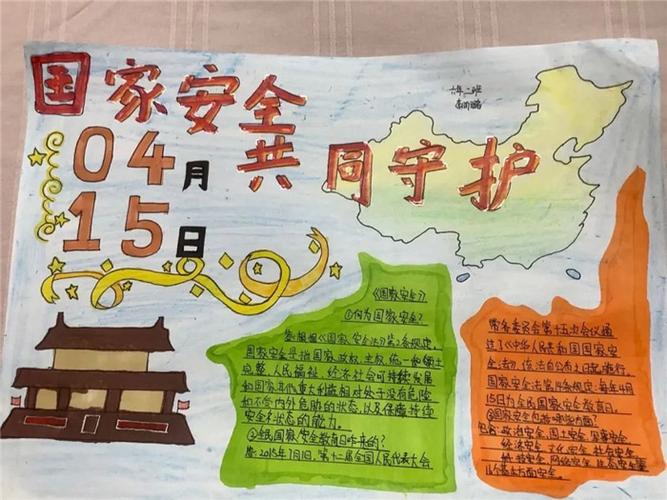 国家安全
共同守护
04月
15日
六年二班
《国家安全》
①何为国家安全?
答:根据《国家安全法》第2条规定,
国家安全是指国家政权、主权、统一和领土
完整、人民福祉、经济社会可持续发展
和国家其他重大利益相对处于没有危险
和不受内外威胁的状态,以及保障持续
安全状态的能力。
②全民国家安全教育日咋来的?
答:2015年7月1日,第十二届全国人民代表大会
常务委员会第十五次会议通
过了《中华人民共和国国家安
全法》,该法自公布之日起施行。
国家安全法第14条规定:每年4月
15日为全民国家安全教育日。
③国家安全包括哪些方面?
包含政治安全、国土安全、军事安全
经济安全、文化安全、社会安全
网络安全、生态安全
16个基本方面安全。